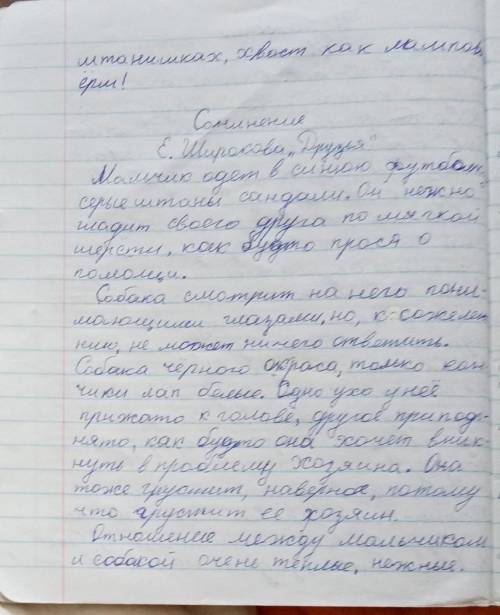 штанишках, хвост как
ёрш!
Сочинение
Е. Широкова „Друзья"
Мальчик одет в синюю футболк
серые штаны сандали. Он нежно
гладит своего друга по мягкой
шерсти, как будто прося о
помощи.
Собака смотрит на него пони-
мающими глазами, но, к сожеле
нию, не может ничего ответить.
Собака черного окраса, только кон
чики лап белые. Одно ухо у неё
прижато к голове, другое припод-
нято, как будто она хочет вник-
нуть в проблему хозяина. Она
тоже грустит, наверное, потому
что грустит ее хозяин.
Отношение между мальчиком
и собакой очене тёплые, нежные.